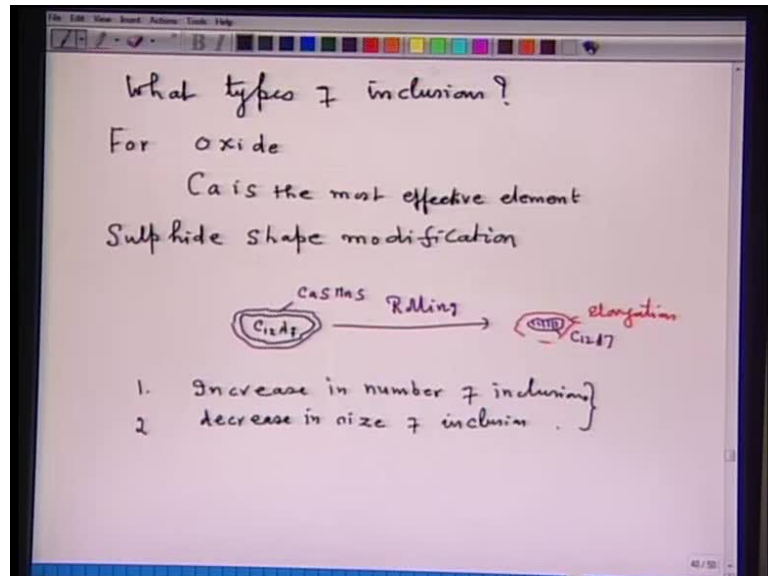 File Edit View Insert Actions Tools Help
What types of inclusions?
For oxide
Ca is the most effective element
Sulphide shape modification
CaS MnS Rolling
C12A7 elongation
C12A7
1. Increase in number of inclusions
2 decrease in size of inclusion.
40/50